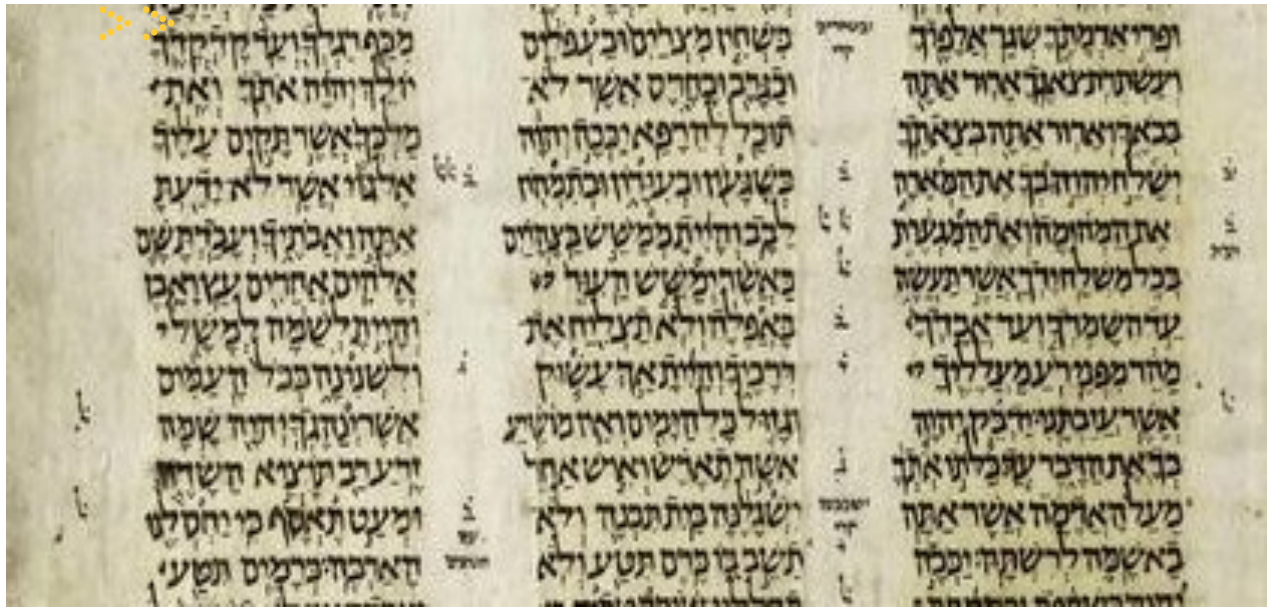 ופרי אדמתך שגר אלפיך
ועשתרת צאנך ארור אתה
בבאך וארור אתה בצאתך
ישלח יהוה בך את המארה
את המהומה ואת המגערת
בכל משלח ידך אשר תעשה
עד השמדך ועד אבדך
מהר מפני רע מעלליך
אשר עזבתני ידבק יהוה
בך את הדבר עד כלתו אתך
מעל האדמה אשר אתה
בא שמה לרשתה יככה
ובטחרים
קרי
ישכבנה
קרי
בשחין מצרים ובעפלים
ובגרב ובחרס אשר לא
תוכל להרפא יככה יהוה
בשגעון ובעורון ובתמהון
לבב והיית ממשש בצהרים
כאשר ימשש העור
באפלה ולא תצליח את
דרכיך והיית אך עשוק
וגזול כל הימים ואין מושיע
אשה תארש ואיש אחר
ישגלנה בית תבנה ולא
תשב בו כרם תטע ולא
מכף רגלך ועד קדקדך
יולך יהוה אתך ואת
מלכך אשר תקים עליך
אל גוי אשר לא ידעת
אתה ואבתיך ועבדת שם
אלהים אחרים עץ ואבן
והיית לשמה למשל
ולשנינה בכל העמים
אשר ינהגך יהוה שמה
זרע רב תוציא השדה
ומעט תאסף כי יחסלנו
הארבה כרמים תטע